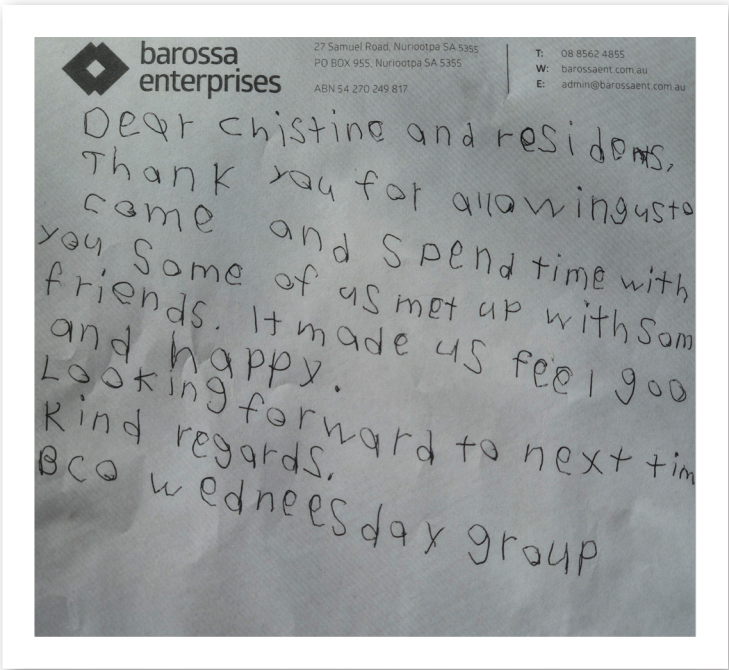 barossa
enterprises
27 Samuel Road, Nuriootpa SA 5355
PO BOX 955, Nuriootpa SA 5355
ABN 54 270 249 817
T: 08 8562 4855
W: barossaent.com.au
E: admin@barossaent.com.au
Dear Chistine and residents,
Thank you for allowingusto
come and spend time with
you Some of us met up with Som
friends. It made us feel goo
and happy.
Looking forward to next tim
Kind regards,
BCO wedneesday group